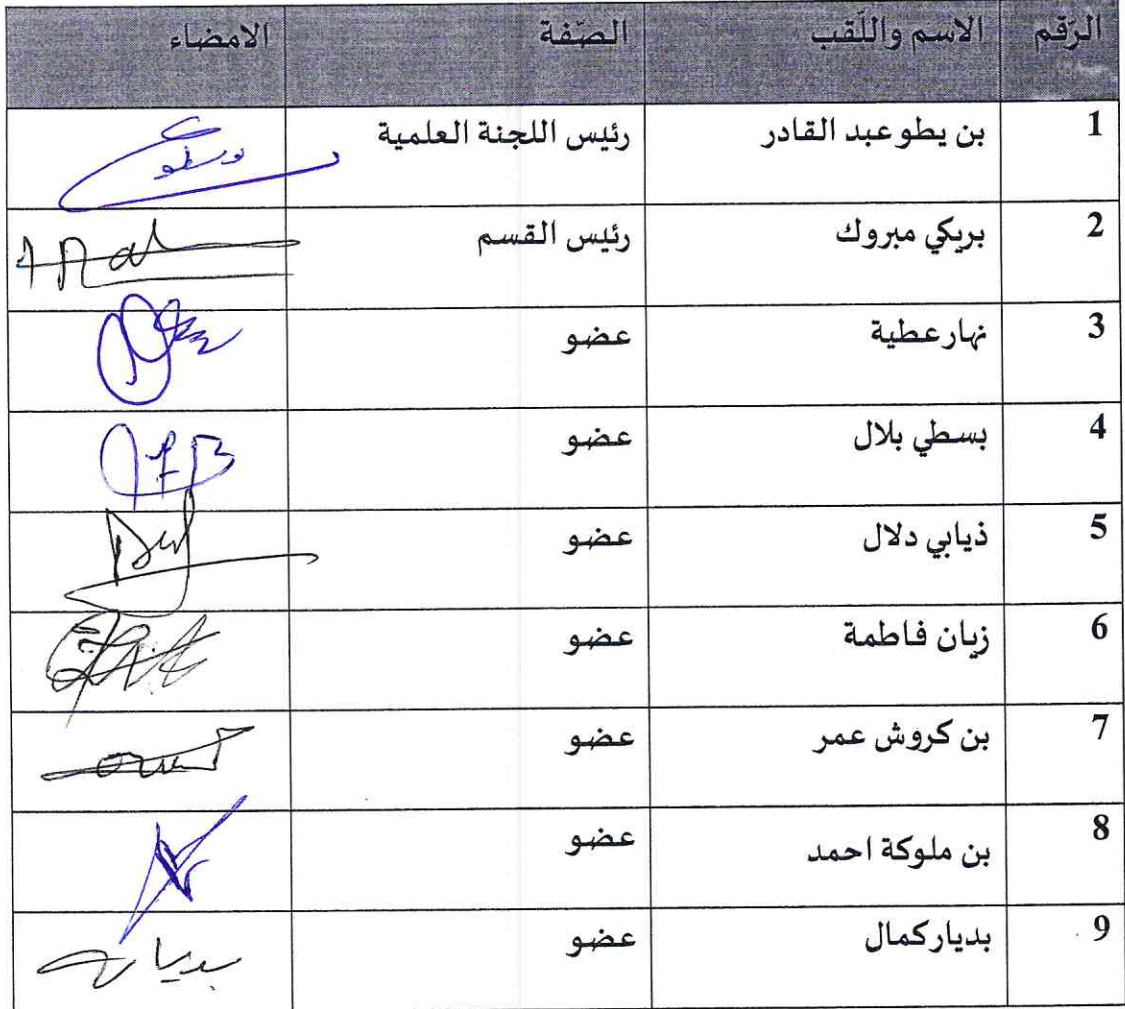 الرّقم الاسم واللّقب الصّفة الامضاء
1 بن يطو عبد القادر رئيس اللجنة العلمية
2 بريكي مبروك رئيس القسم
3 نهار عطية عضو
4 بسطي بلال عضو
5 ذيابي دلال عضو
6 زيان فاطمة عضو
7 بن كروش عمر عضو
8 بن ملوكة احمد عضو
9 بديار كمال عضو